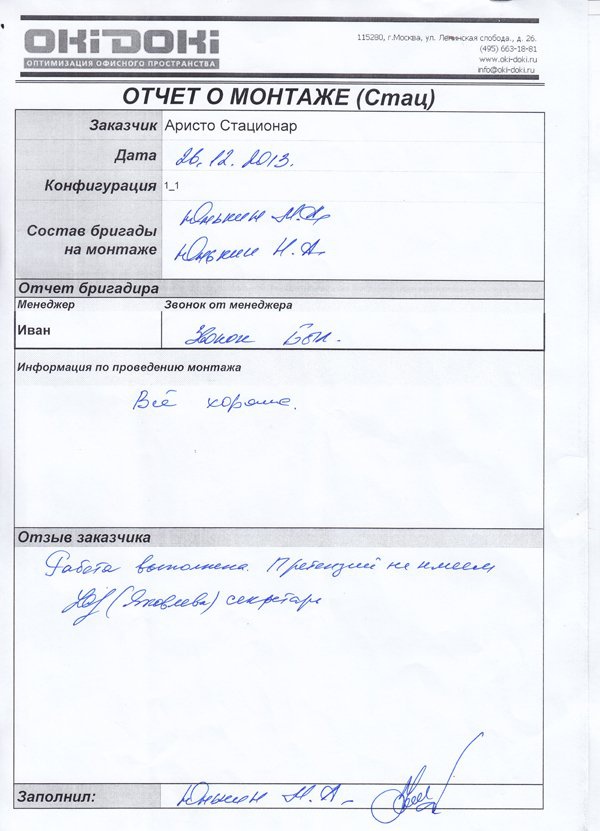 OKIDOKI
ОПТИМИЗАЦИЯ ОФИСНОГО ПРОСТРАНСТВА
115280, г.Москва, ул. Ленинская слобода., д. 26.
(495) 663-18-81
www.oki-doki.ru
info@oki-doki.ru
ОТЧЕТ О МОНТАЖЕ (Стац)
Заказчик Аристо Стационар
Дата 26.12.2013.
Конфигурация 1_1
Состав бригады на монтаже
Юнькин М.А.
Юнькин Н.А.
Отчет бригадира
Менеджер Звонок от менеджера
Иван Звонок был.
Информация по проведению монтажа
Всё хорошо.
Отзыв заказчика
Работа выполнена. Претензий не имеем
(Яковлева) секретарь
Заполнил: Юнькин Н.А.